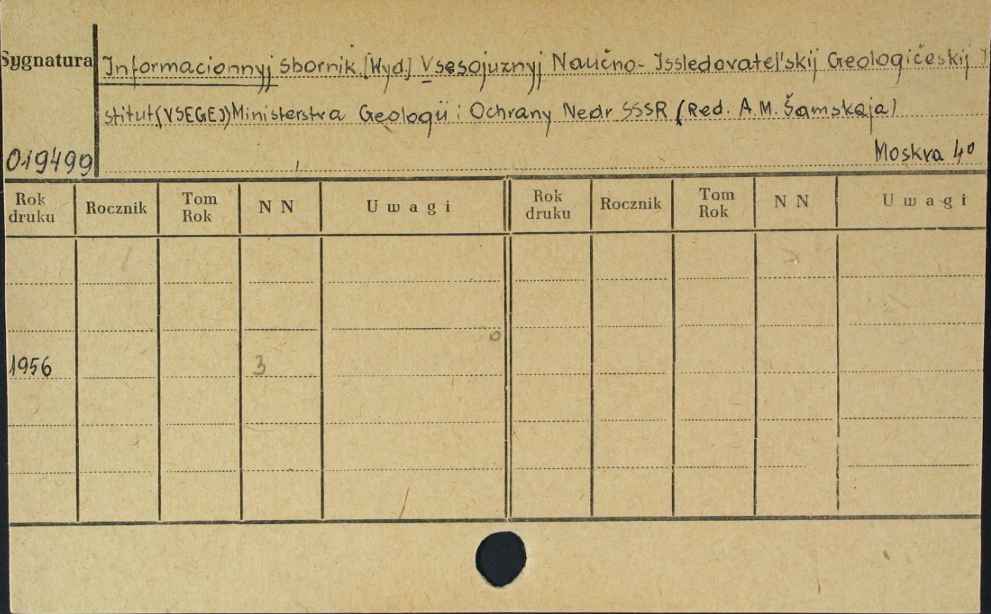 Sygnatura
Informacionnyj sbornik. [Wyd.] Vsęsojuznyj Naučno-Issledovatel'skij Geologičeskij I
stitut (VSEGEJ) Ministerstva Geologii i Ochrany Nedr SSSR (Red. A.M. Šamskaja)
019499 Moskva 4°
Rok druku Rocznik Tom Rok N N Uwagi Rok druku Rocznik Tom Rok N N Uwagi
1956 3